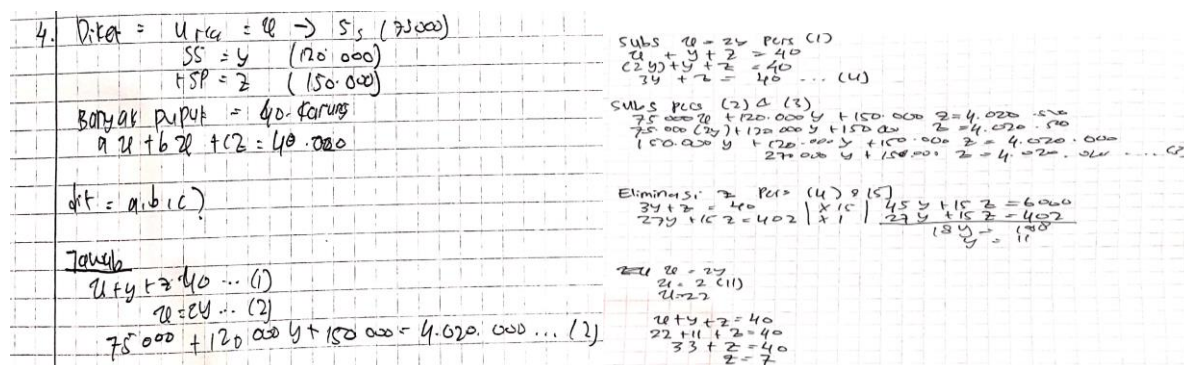 4. Diket = Urea = x → Ss (75000)
SS = y (120.000)
tSP = z (150.000)
Banyak pupuk = 40. karung
a x + b x + cz = 40.000
dit = a,b,c?
Jawab
x + y + z = 40 ... (1)
x = 2y ... (2)
75000 + 120000 y + 150 000 = 4.020.000 ... (2)
Subs x = 2y Pers (1)
x + y + z = 40
(2y) + y + z = 40
3y + z = 40 ... (4)
Subs pers (2) & (3)
75000x + 120.000 y + 150.000 z = 4.020
75.000 (2y) + 120 000 y + 150 z = 4.020
150.000 y + 120.000 y + 150.000 z = 4.020.000
270000 y + 150.000 z = 4.020.
Eliminasi z Pers (4) & (5)
3y + z = 40 | x 15 | 45 y + 15 z = 6000
27y + 15 z = 402 | x 1 | 27 y + 15 z = 402
18 y = 198
y = 11
x = 2y
x = 2 (11)
x = 22
x + y + z = 40
22 + 11 + z = 40
33 + z = 40
z = 7